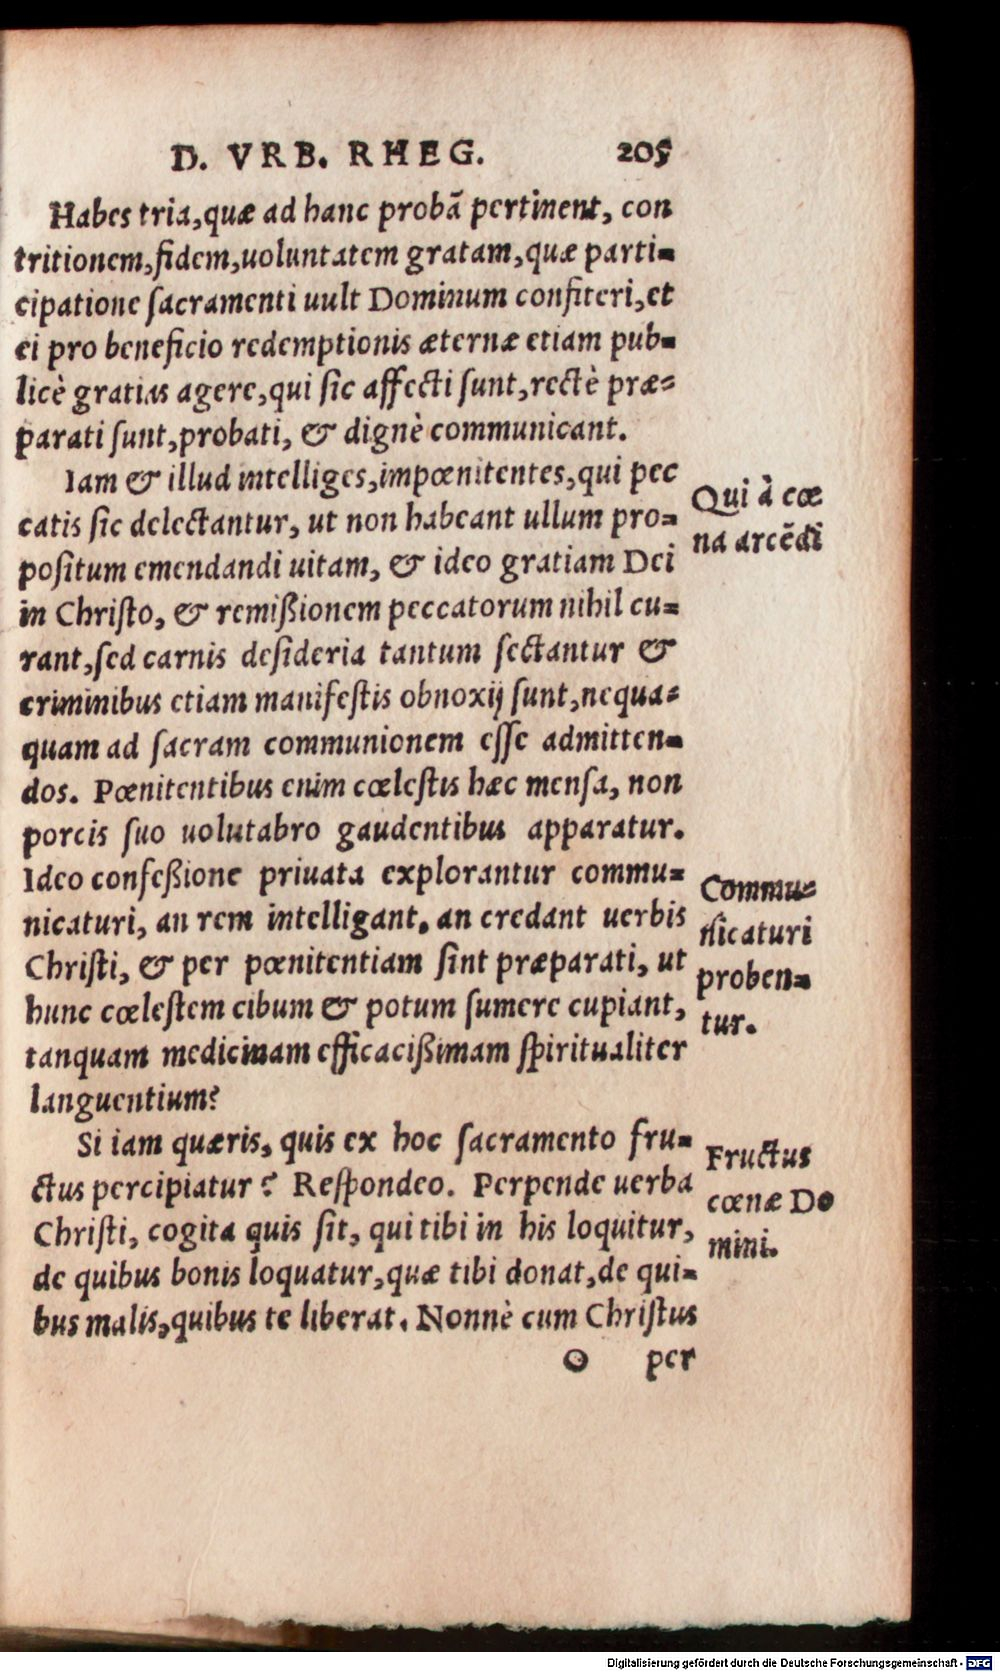 D. VRB. RHEG. 205
Habes tria, quæ ad hanc probã pertinent, con
tritionem, fidem, uoluntatem gratam, quæ parti-
cipatione sacramenti uult Dominum confiteri, et
ei pro beneficio redemptionis æternæ etiam pub-
licè gratias agere, qui sic affecti sunt, rectè præ-
parati sunt, probati, & dignè communicant.
Iam & illud intelliges, impœnitentes, qui pec
catis sic delectantur, ut non habeant ullum pro-
positum emendandi uitam, & ideo gratiam Dei
in Christo, & remißionem peccatorum nihil cu-
rant, sed carnis desideria tantum sectantur &
criminibus etiam manifestis obnoxij sunt, nequa-
quam ad sacram communionem esse admitten-
dos. Pœnitentibus enim cœlestis hæc mensa, non
porcis suo uolutabro gaudentibus apparatur.
Ideo confeßione priuata explorantur commu-
nicaturi, an rem intelligant, an credant uerbis
Christi, & per pœnitentiam sint præparati, ut
hunc cœlestem cibum & potum sumere cupiant,
tanquam medicinam efficacißimam spiritualiter
languentium?
Si iam quæris, quis ex hoc sacramento fru-
ctus percipiatur? Respondeo. Perpende uerba
Christi, cogita quis sit, qui tibi in his loquitur,
de quibus bonis loquatur, quæ tibi donat, de qui-
bus malis, quibus te liberat. Nonnè cum Christus
O per
Qui à cœ
na arcẽdi
Commu-
nicaturi
proben-
tur.
Fructus
cœnæ Do
mini.
Digitalisierung gefördert durch die Deutsche Forschungsgemeinschaft - DFG